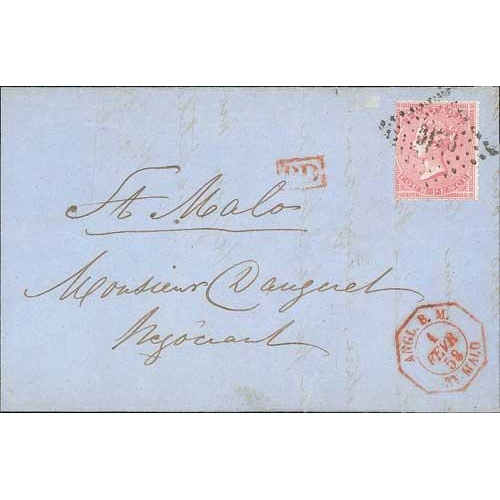 FOUR PENCE
P.D.
St Malo
Monsieur Dauguet
Négociant
ANGL. B. M.
1
FEVR
58
ST MALO